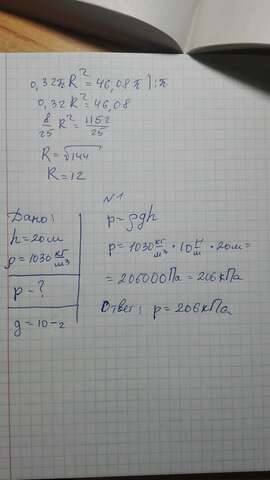 0,32πR² = 46,08π |:π
0,32R² = 46,08
8/25 R² = 1152/25
R = √144
R = 12
N1
Дано:
h = 20м
ρ = 1030 кг/м³
p - ?
g = 10-2
p = ρgh
p = 1030 кг/м³ · 10 Н/м · 20м =
= 206000 Па = 206 кПа
Ответ: p = 206 кПа